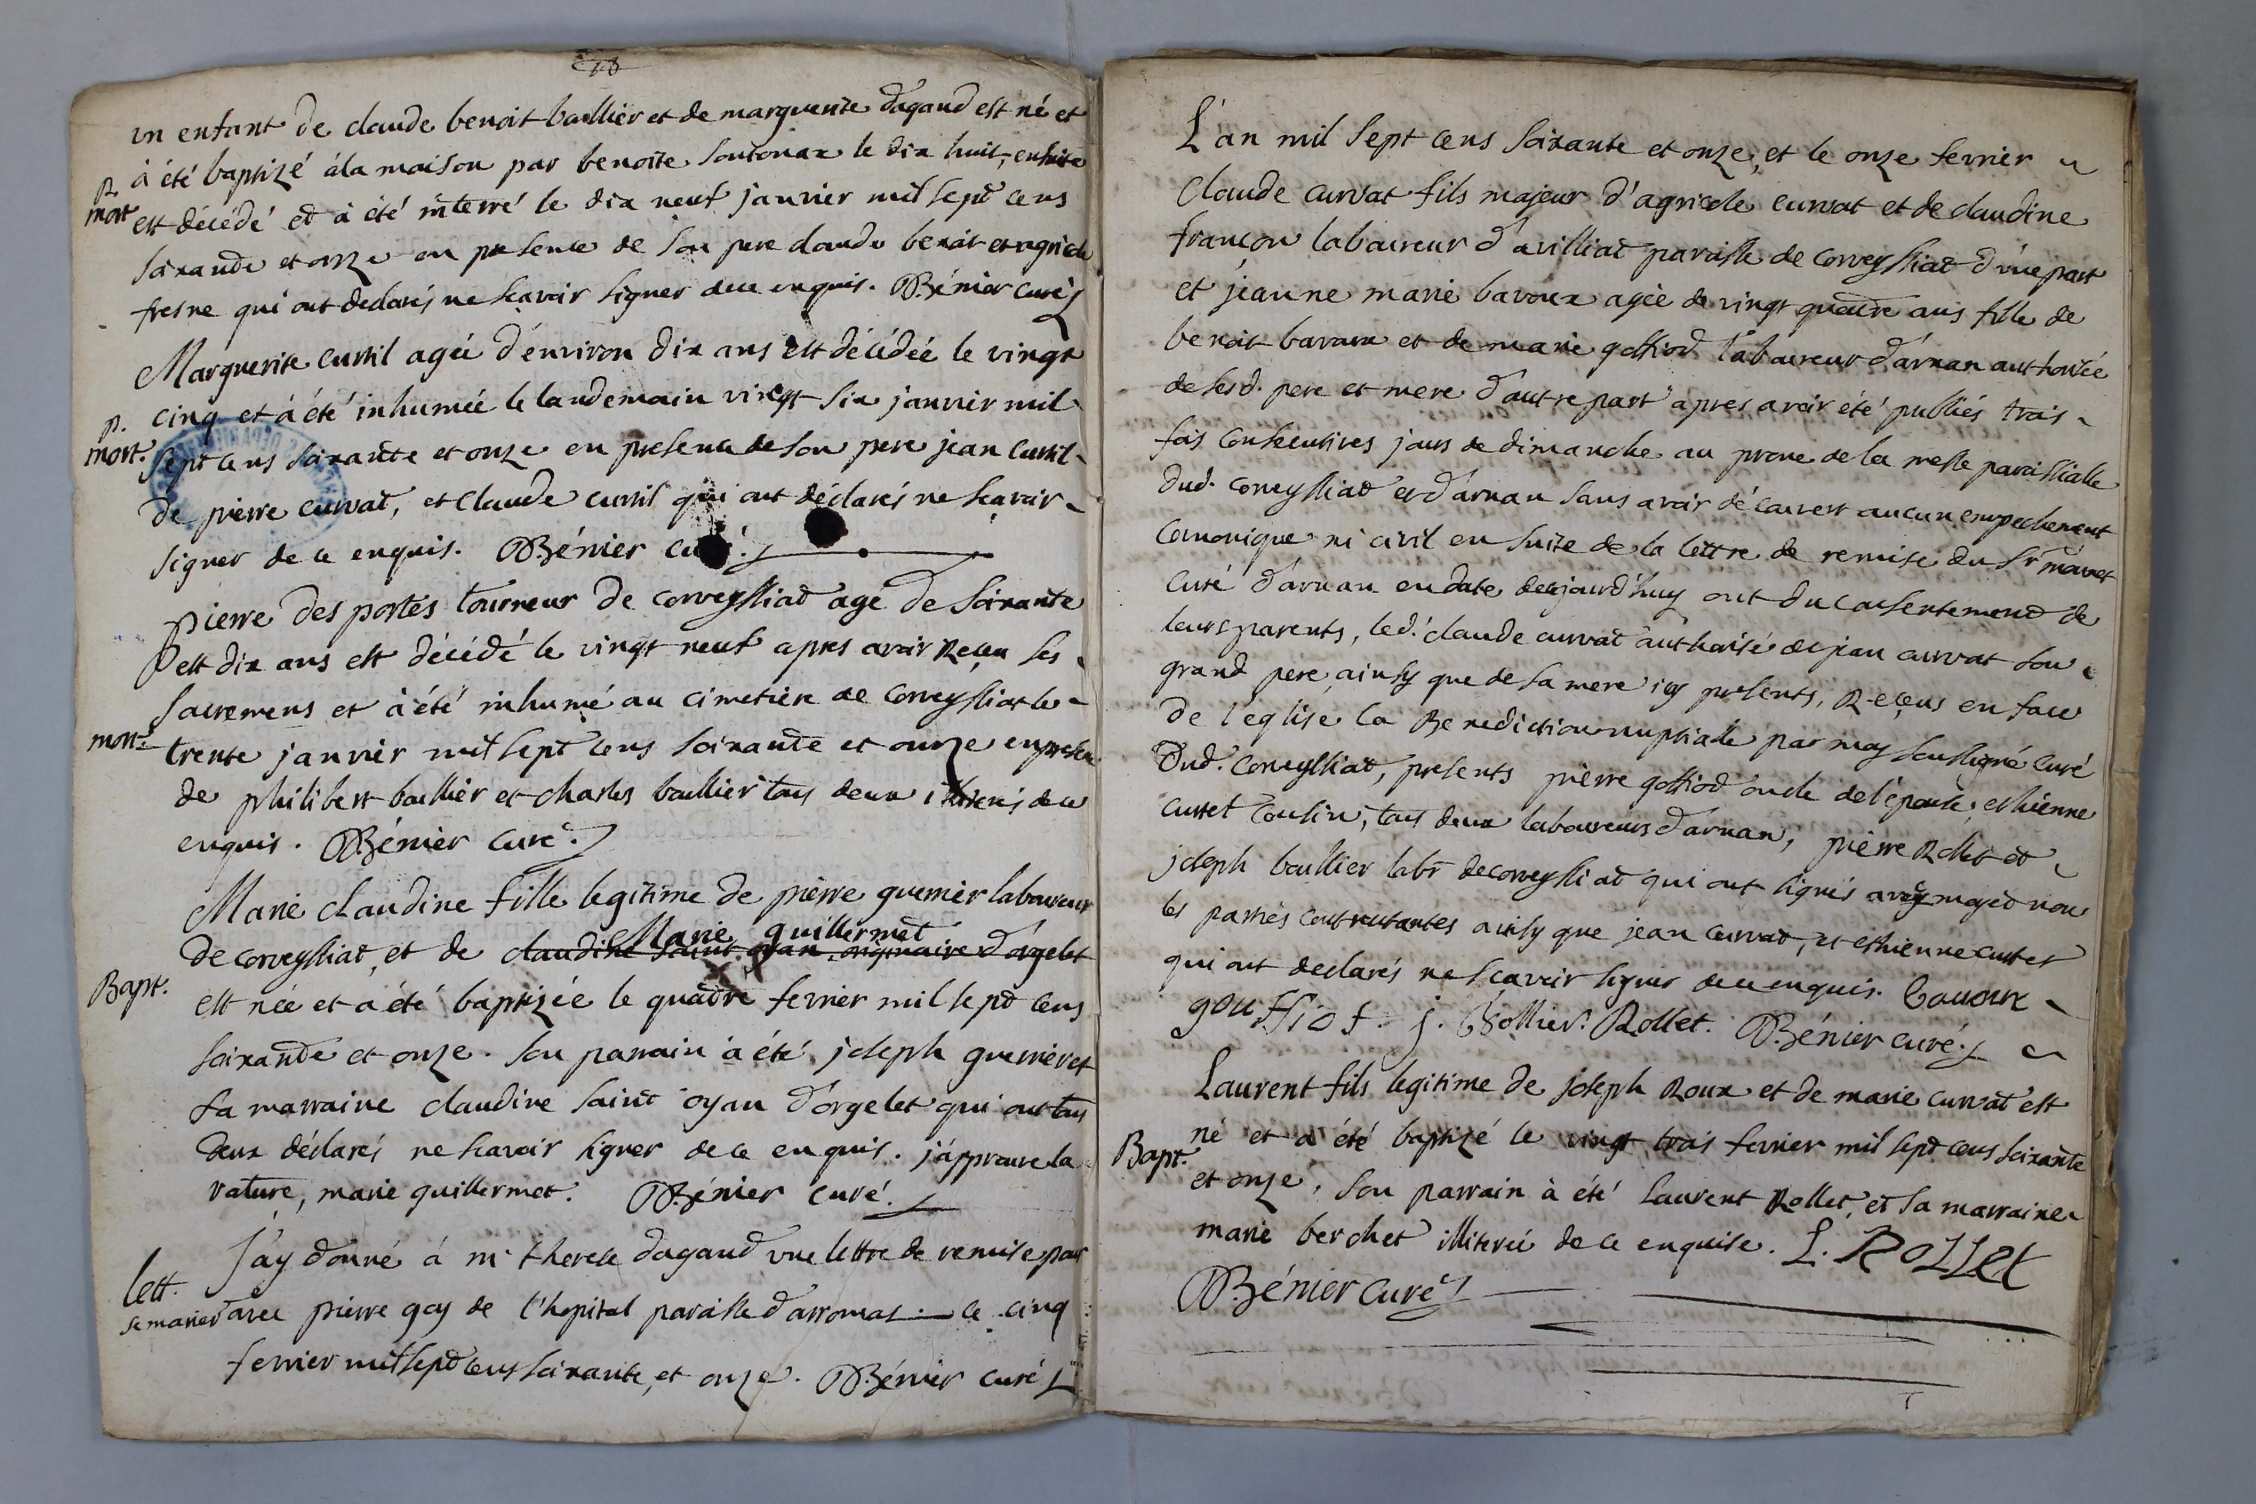 18
un enfant de claude benoit baullier et de marguerite dagaud est né et
à été baptizé à la maison par benoite soutonax le dix huit, ensuite
p. mort est décédé et à été interré le dix neuf janvier mil sept cens
soixante et onze en presence de son pere claude benoit et agricole
fresne qui ont declarés ne scavoir signer de ce enquis. Bénier curé
Marguerite curtil agée d'énviron dix ans est décédée le vingt
cinq et à été inhumée le landemain vingt six janvier mil
p. mort. sept cens soixante et onze en presence de son pere jean curtil
de pierre curvat, et claude curtil qui ont déclarés ne scavoir
signer de ce enquis. Bénier curé.
pierre des portes tourneur de corveyssiat agé de soixante
et dix ans est décédé le vingt neuf apres avoir Reçeu ses
sacremens et à été inhumé au cimetiere de corveyssiat le
mort. trente janvier mil sept cens soixante et onze en presen
de philibert baullier et charles baullier tous deux illiterés de ce
enquis. Bénier curé.
Marie claudine fille legitime de pierre guerrier laboureur
Marie guillermet
de corveyssiat, et de claudine saint oyan, originaire d'orgelet
Bapt. est née et a été baptizée le quatre fevrier mil sept cens
soixante et onze. son parrain à été joseph guerrier et
sa marraine claudine saint oyan d'orgelet qui ont tous
deux déclarés ne scavoir signer de ce enquis. j'approuve la
rature, marie guillermet. Bénier curé.
J'ay donné á m. therese dagaud une lettre de remise pour
lett. se marier avec pierre gay de l'hopital paroisse d'arromas ce cinq
fevrier mil sept cens soixante, et onze. Bénier curé
L'an mil sept cens soixante et onze, et le onze fevrier
claude curvat fils majeur d'agricole curvat et de claudine
françon laboureur d'avilliat paroisse de corveyssiat d'une part
et jeanne marie bavoux agée de vingt quatre ans fille de
benoit bavoux et de marie goffiod laboureur d'arnan authorisée
de sesd. pere et mere d'autre part apres avoir été publiés trois
fois consecutives jours de dimanche au prone de la messe paroissialle
dud. corveyssiat et d'arnan sans avoir découvert aucun empechement
canonique ni civil en suite de la lettre de remise du Sr
curé d'arnan en date de cejourd'huy ont du consentement de
leurs parents, led. claude curvat authorisé de jean curvat son
grand pere, ainsy que de sa mere icy presents, Reçeus en face
de l'eglise la Benediction nuptialle par moy soussigné curé
dud. corveyssiat, presents pierre goffiod oncle de l'épouse, ethienne
curtet cousin, tous deux laboureurs d'arnan, pierre Rollet et
joseph baullier labr de corveyssiat qui ont signés avec moy et non
les parties contractantes ainsy que jean curvat, et ethienne curtet
qui ont declarés ne scavoir signer de ce enquis. bavoux
gouffiot. j. Bollier. Rollet. Bénier curé.
Laurent fils legitime de joseph Roux et de marie curvat est
Bapt. né et a été baptizé le vingt trois fevrier mil sept cens soixante
et onze, son parrain à été laurent Rollet, et sa marraine
marie berchet illiterée de ce enquise. L. Rollet
Bénier curé